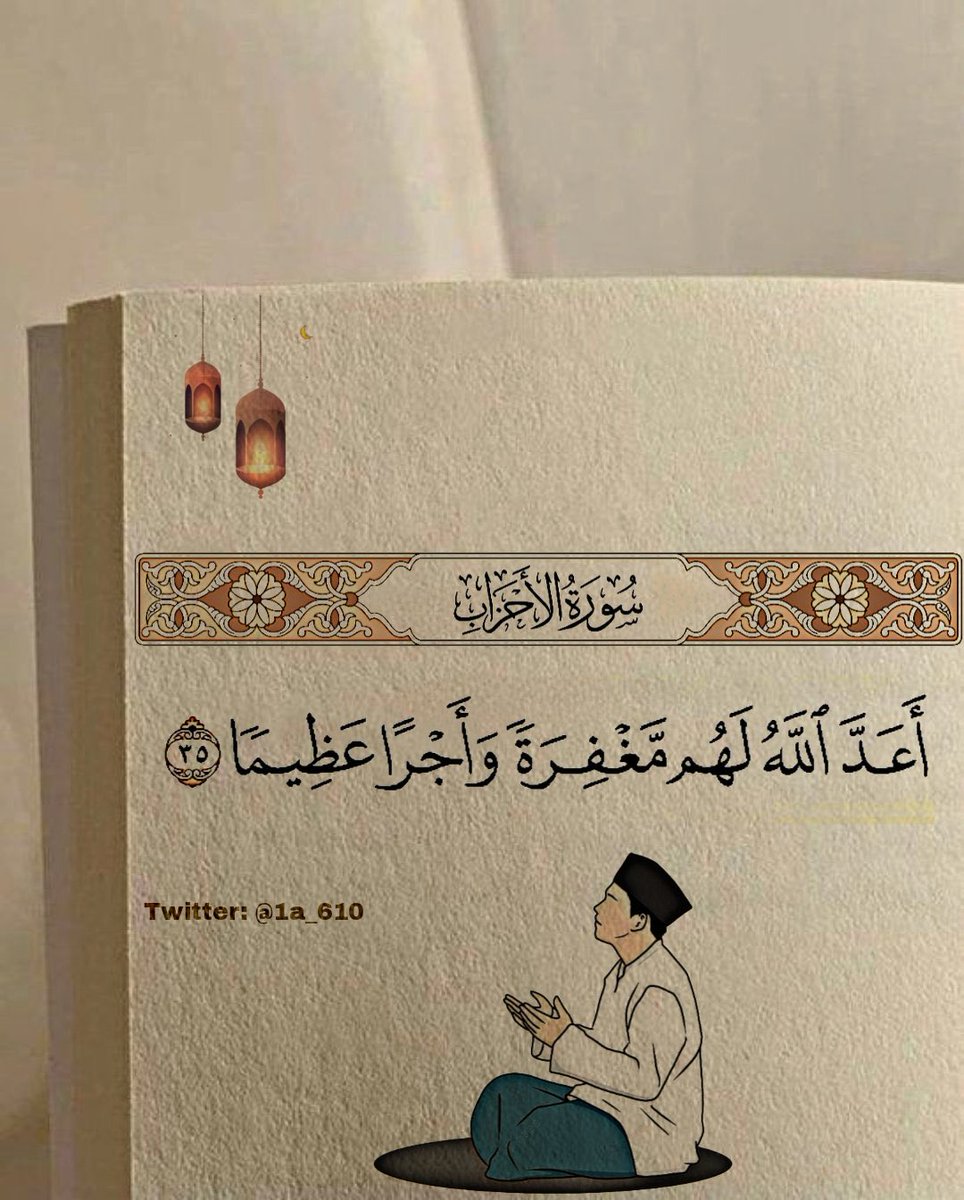 سُورَةُ الأَحْزَابِ
أَعَدَّ ٱللَّهُ لَهُم مَّغْفِرَةً وَأَجْرًا عَظِيمًا ٣٥
Twitter: @1a_610